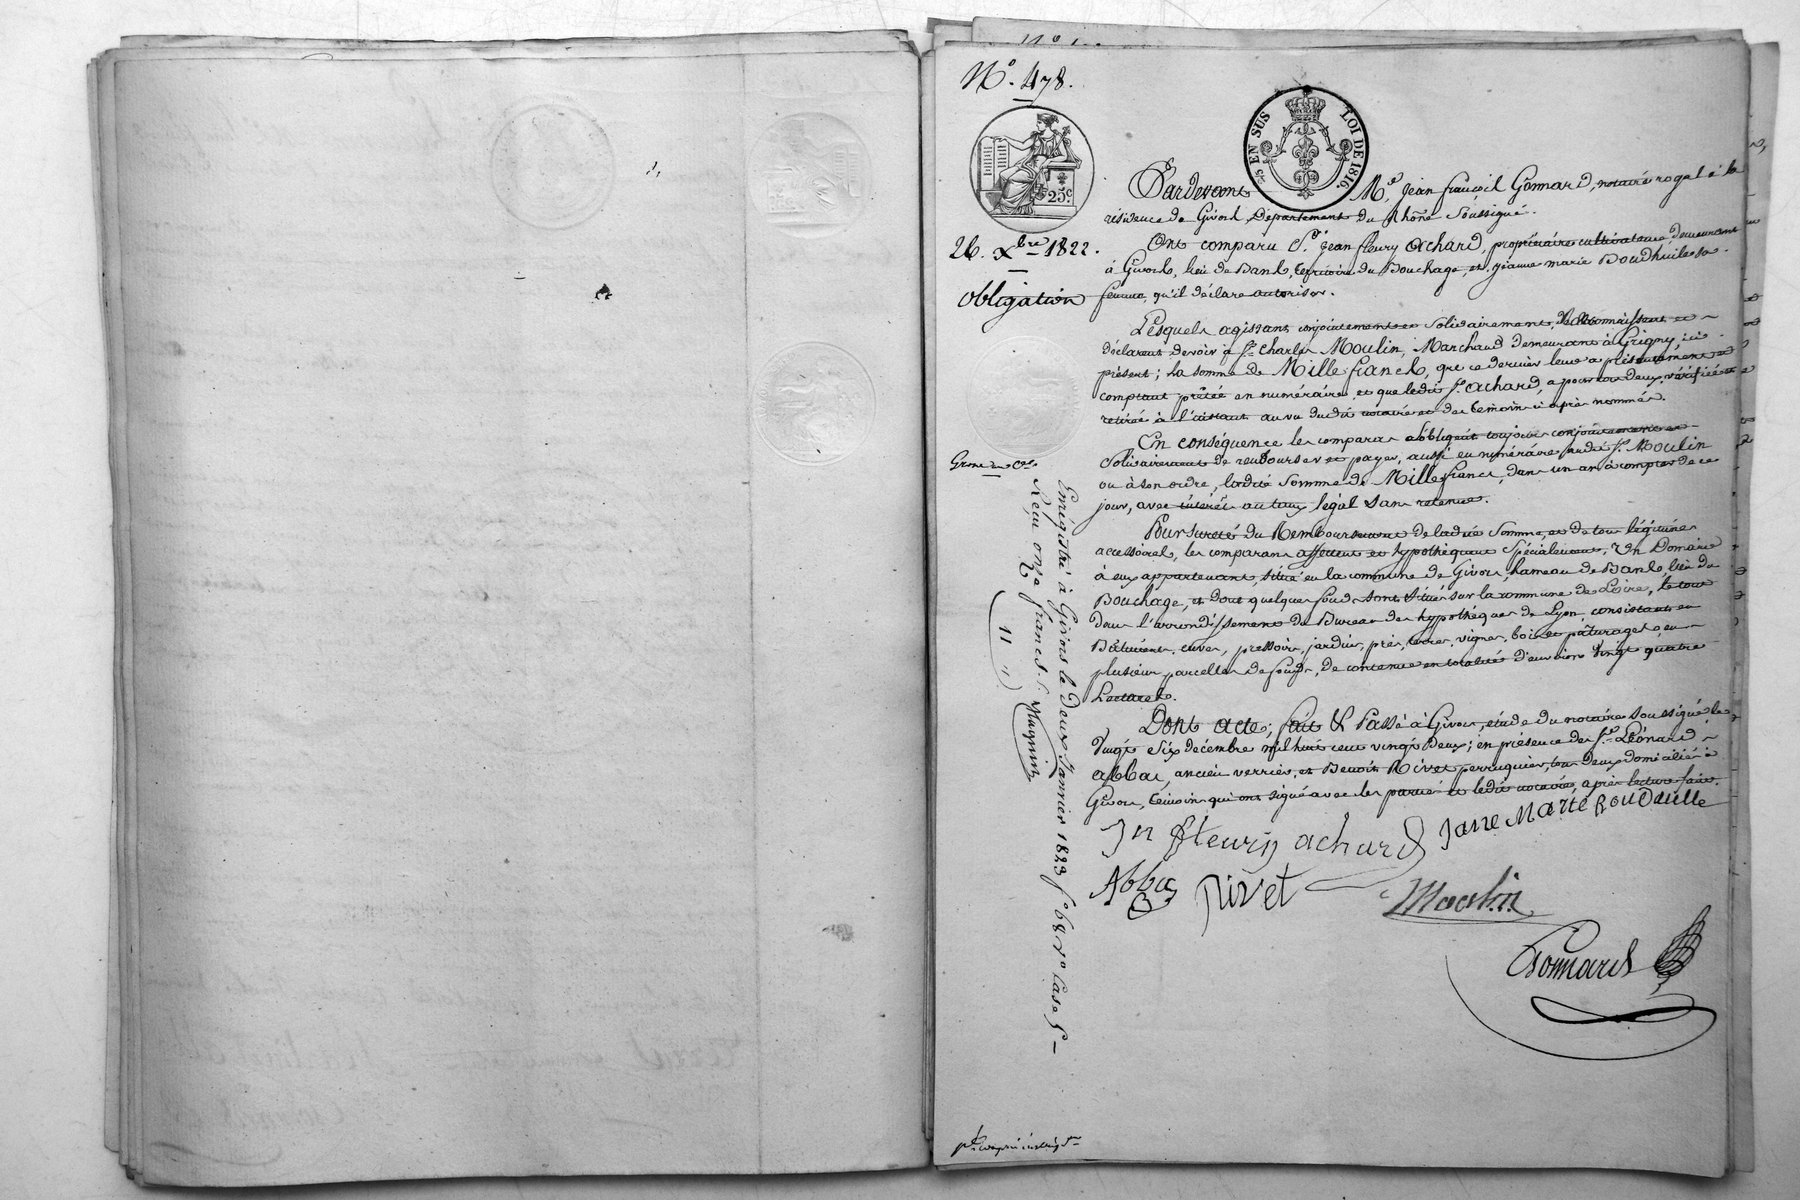 N.º 478.
25 c.
5/5 EN SUS LOI DE 1816.
Pardevant M.e Jean françois Gonnard, notaire royal à la
résidence de Givors, Département du Rhône Soussigné.
26. Xbre 1822.
Ont comparu S.r Jean fleury Achard, propriétaire cultivateur demeurant
à Givors, lieu de Bans, territoire du Bouchage, et Jeanne marie Boudhuile sa
obligation
femme, qu'il déclare autoriser.
Lesquels agissant conjointement et Solidairement, Reconnaissent et
déclarent devoir à S.r Charles Moulin, Marchand demeurant à Grigny, ici
présent; la somme de Mille francs, que ce dernier leur a présentement et
comptant prêtée en numéraire, et que ledit S.r Achard, a pour tous deux, vérifiée et
retirée à l'instant au vu dudit notaire et des témoins ci après nommés.
En conséquence les comparans s'obligent toujours conjointement et
Solidairement de rembourser et payer, aussi en numéraire audit S.r Moulin
ou à son ordre, ladite Somme de Mille francs, dans un an à compter de ce
jour, avec intérêt au taux légal sans retenue.
Pour sureté du Remboursement de ladite Somme, et de tous légitimes
accessoires, les comparans affectent et hypothèquent Spécialement, Un Domaine
à eux appartenant, situé en la commune de Givors, hameau de Bans, lieu du
Bouchage, et dont quelques fonds sont situés sur la commune de Loire, le tout
dans l'arrondissement du Bureau des hypothèques de Lyon, consistant en
Bâtiment, cuves, pressoir, jardin, prés, terres, vignes, bois et pâturages, en
plusieurs parcelles de fonds, de contenue en totalité d'environ Vingt quatre
hectares.
Dont acte; fait & Passé à Givors, étude du notaire soussigné le
Vingt Six décembre mil huit cent vingt Deux; en présence des S.rs Léonard
Abbas, ancien verrier, et Benoit Rivet perruquier, tous deux domiciliés à
Givors, témoins qui ont signé avec les parties et ledit notaire, après lecture faite.
Jn fleury achard Jane Marie Bouduille
Abbas Rivet Moulin
Gonnard
Enregistré à Givors le Deux Janvier 1823 f.o 68 v.o Case 5
Reçu onze francs
11